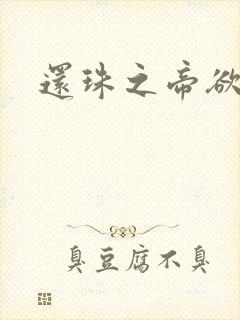 還珠之帝欲
臭豆腐不臭